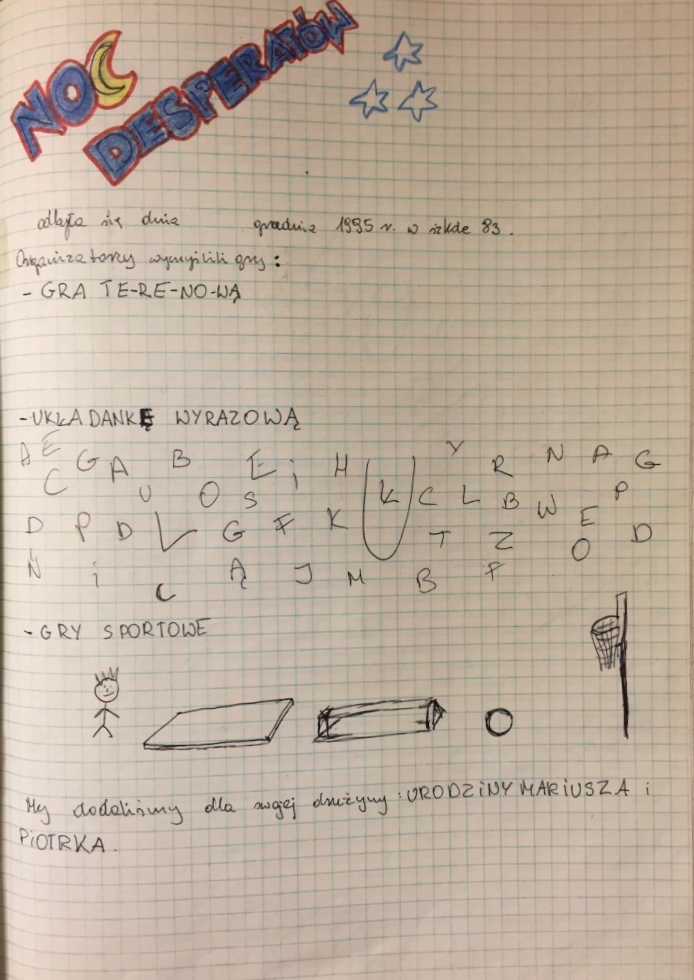 NOC
DESPERATÓW
odbyła się dnia grudnia 1995 r. w szkole 83.
Organizatorzy wymyślili gry:
- GRA TE-RE-NO-WĄ
- UKŁADANKĘ WYRAZOWĄ
A E C G A B E i H Y R N A G
U O S K C L B W P
D P D L G F K T Z E O D
N i C Ą J M B F
- GRY SPORTOWE
My dodaliśmy dla swojej drużyny: URODZiNY MARiUSZA i
PiOTRKA.